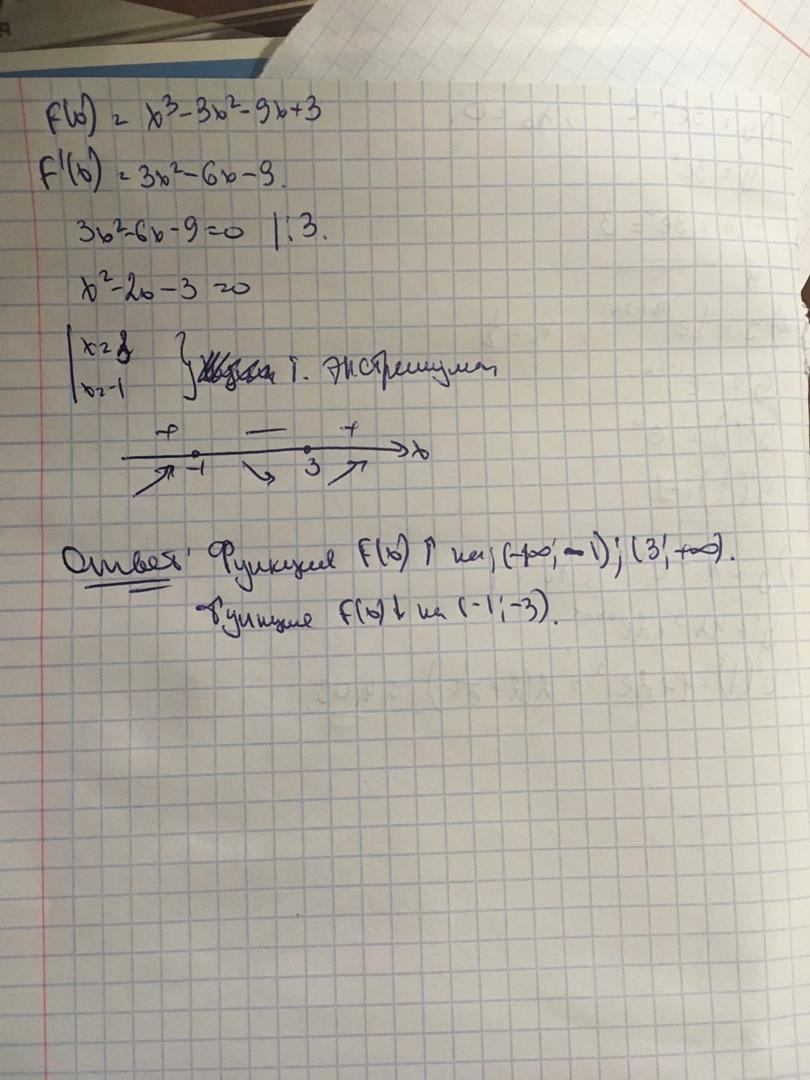 F(x) = x³-3x²-9x+3
F'(x) = 3x²-6x-9.
3x²-6x-9=0 |:3.
x²-2x-3=0
x=3
x=-1 } т. экстремума
+ — +
-1 3 x
Ответ: Функция F(x) ↑ на; (-∞; -1); (3; +∞).
Функция F(x) ↓ на (-1; -3).